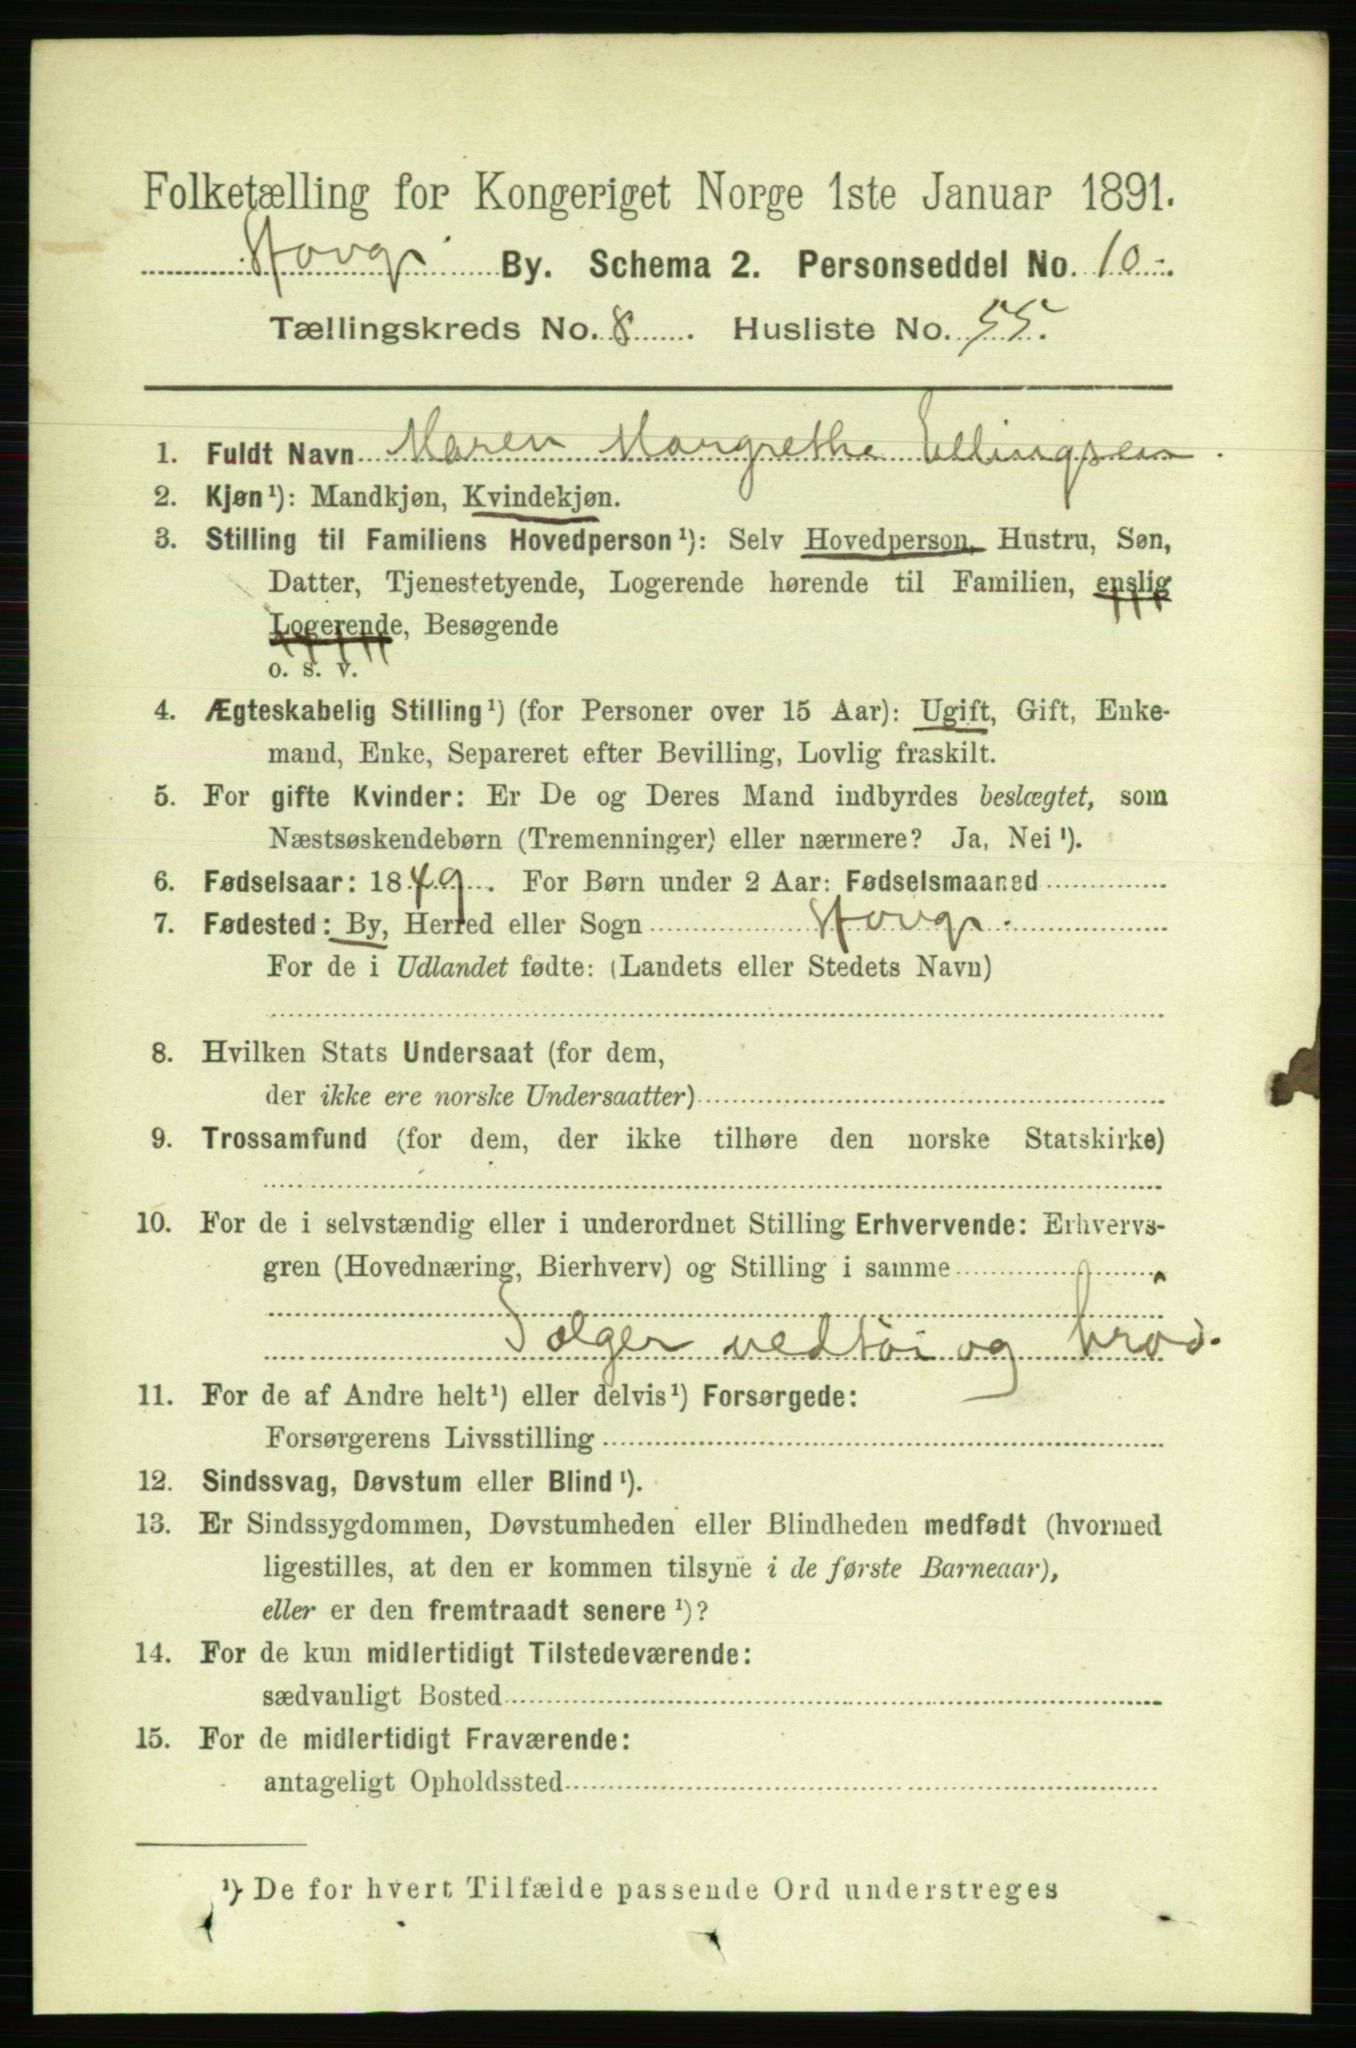 Folketælling for Kongeriget Norge 1ste Januar 1891.
Stavgr By. Schema 2. Personseddel No. 10.
Tællingskreds No. 8. Husliste No. 55.
1. Fuldt Navn Maren Margrethe Ellingsen.
2. Kjøn¹): Mandkjøn, Kvindekjøn.
3. Stilling til Familiens Hovedperson¹): Selv Hovedperson, Hustru, Søn,
Datter, Tjenestetyende, Logerende hørende til Familien, enslig
Logerende, Besøgende
o. s. v.
4. Ægteskabelig Stilling¹) (for Personer over 15 Aar): Ugift, Gift, Enke-
mand, Enke, Separeret efter Bevilling, Lovlig fraskilt.
5. For gifte Kvinder: Er De og Deres Mand indbyrdes beslægtet, som
Næstsøskendebørn (Tremenninger) eller nærmere? Ja, Nei¹).
6. Fødselsaar: 1849. For Børn under 2 Aar: Fødselsmaaned
7. Fødested: By, Herred eller Sogn Stavgr.
For de i Udlandet fødte: (Landets eller Stedets Navn)
8. Hvilken Stats Undersaat (for dem,
der ikke ere norske Undersaatter)
9. Trossamfund (for dem, der ikke tilhøre den norske Statskirke)
10. For de i selvstændig eller i underordnet Stilling Erhvervende: Erhvervs-
gren (Hovednæring, Bierhverv) og Stilling i samme
Sælger vedtøi og brød.
11. For de af Andre helt¹) eller delvis¹) Forsørgede:
Forsørgerens Livsstilling
12. Sindssvag, Døvstum eller Blind¹).
13. Er Sindssygdommen, Døvstumheden eller Blindheden medfødt (hvormed
ligestilles, at den er kommen tilsyne i de første Barneaar),
eller er den fremtraadt senere¹)?
14. For de kun midlertidigt Tilstedeværende:
sædvanligt Bosted
15. For de midlertidigt Fraværende:
antageligt Opholdssted
¹) De for hvert Tilfælde passende Ord understreges